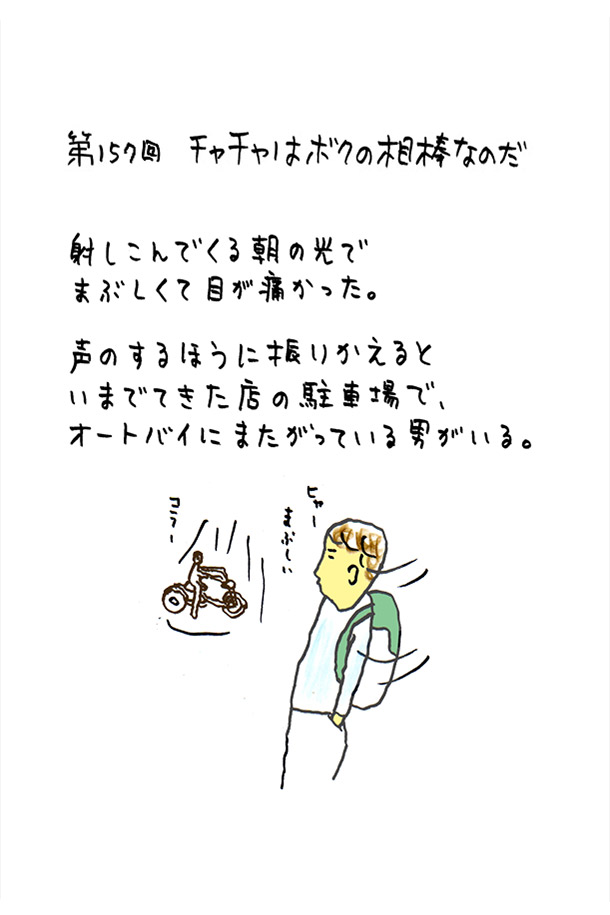 第157回 チャチャはボクの相棒なのだ
射しこんでくる朝の光で
まぶしくて目が痛かった。
声のするほうに振りかえると
いまでてきた店の駐車場で、
オートバイにまたがっている男がいる。
ヒャー
まぶしい
コラー